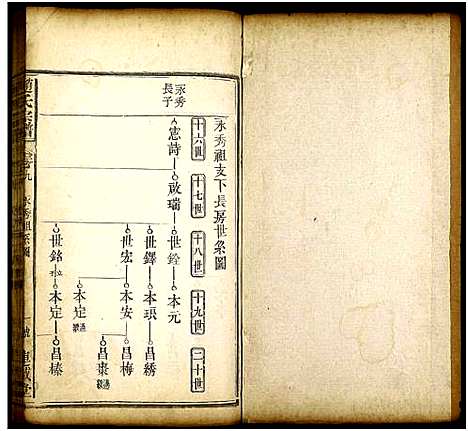 永秀祖支下長房世系圖
十六世 十七世 十八世 十九世 二十世
永秀
長子
憲詩 啟瑞 世銓 本元
世鐸 本瑣 昌綉
世宏 本安 昌梅
本定 昌棗
世銘 本定 昌榛
趙氏宗譜 卷九 永秀祖系圖